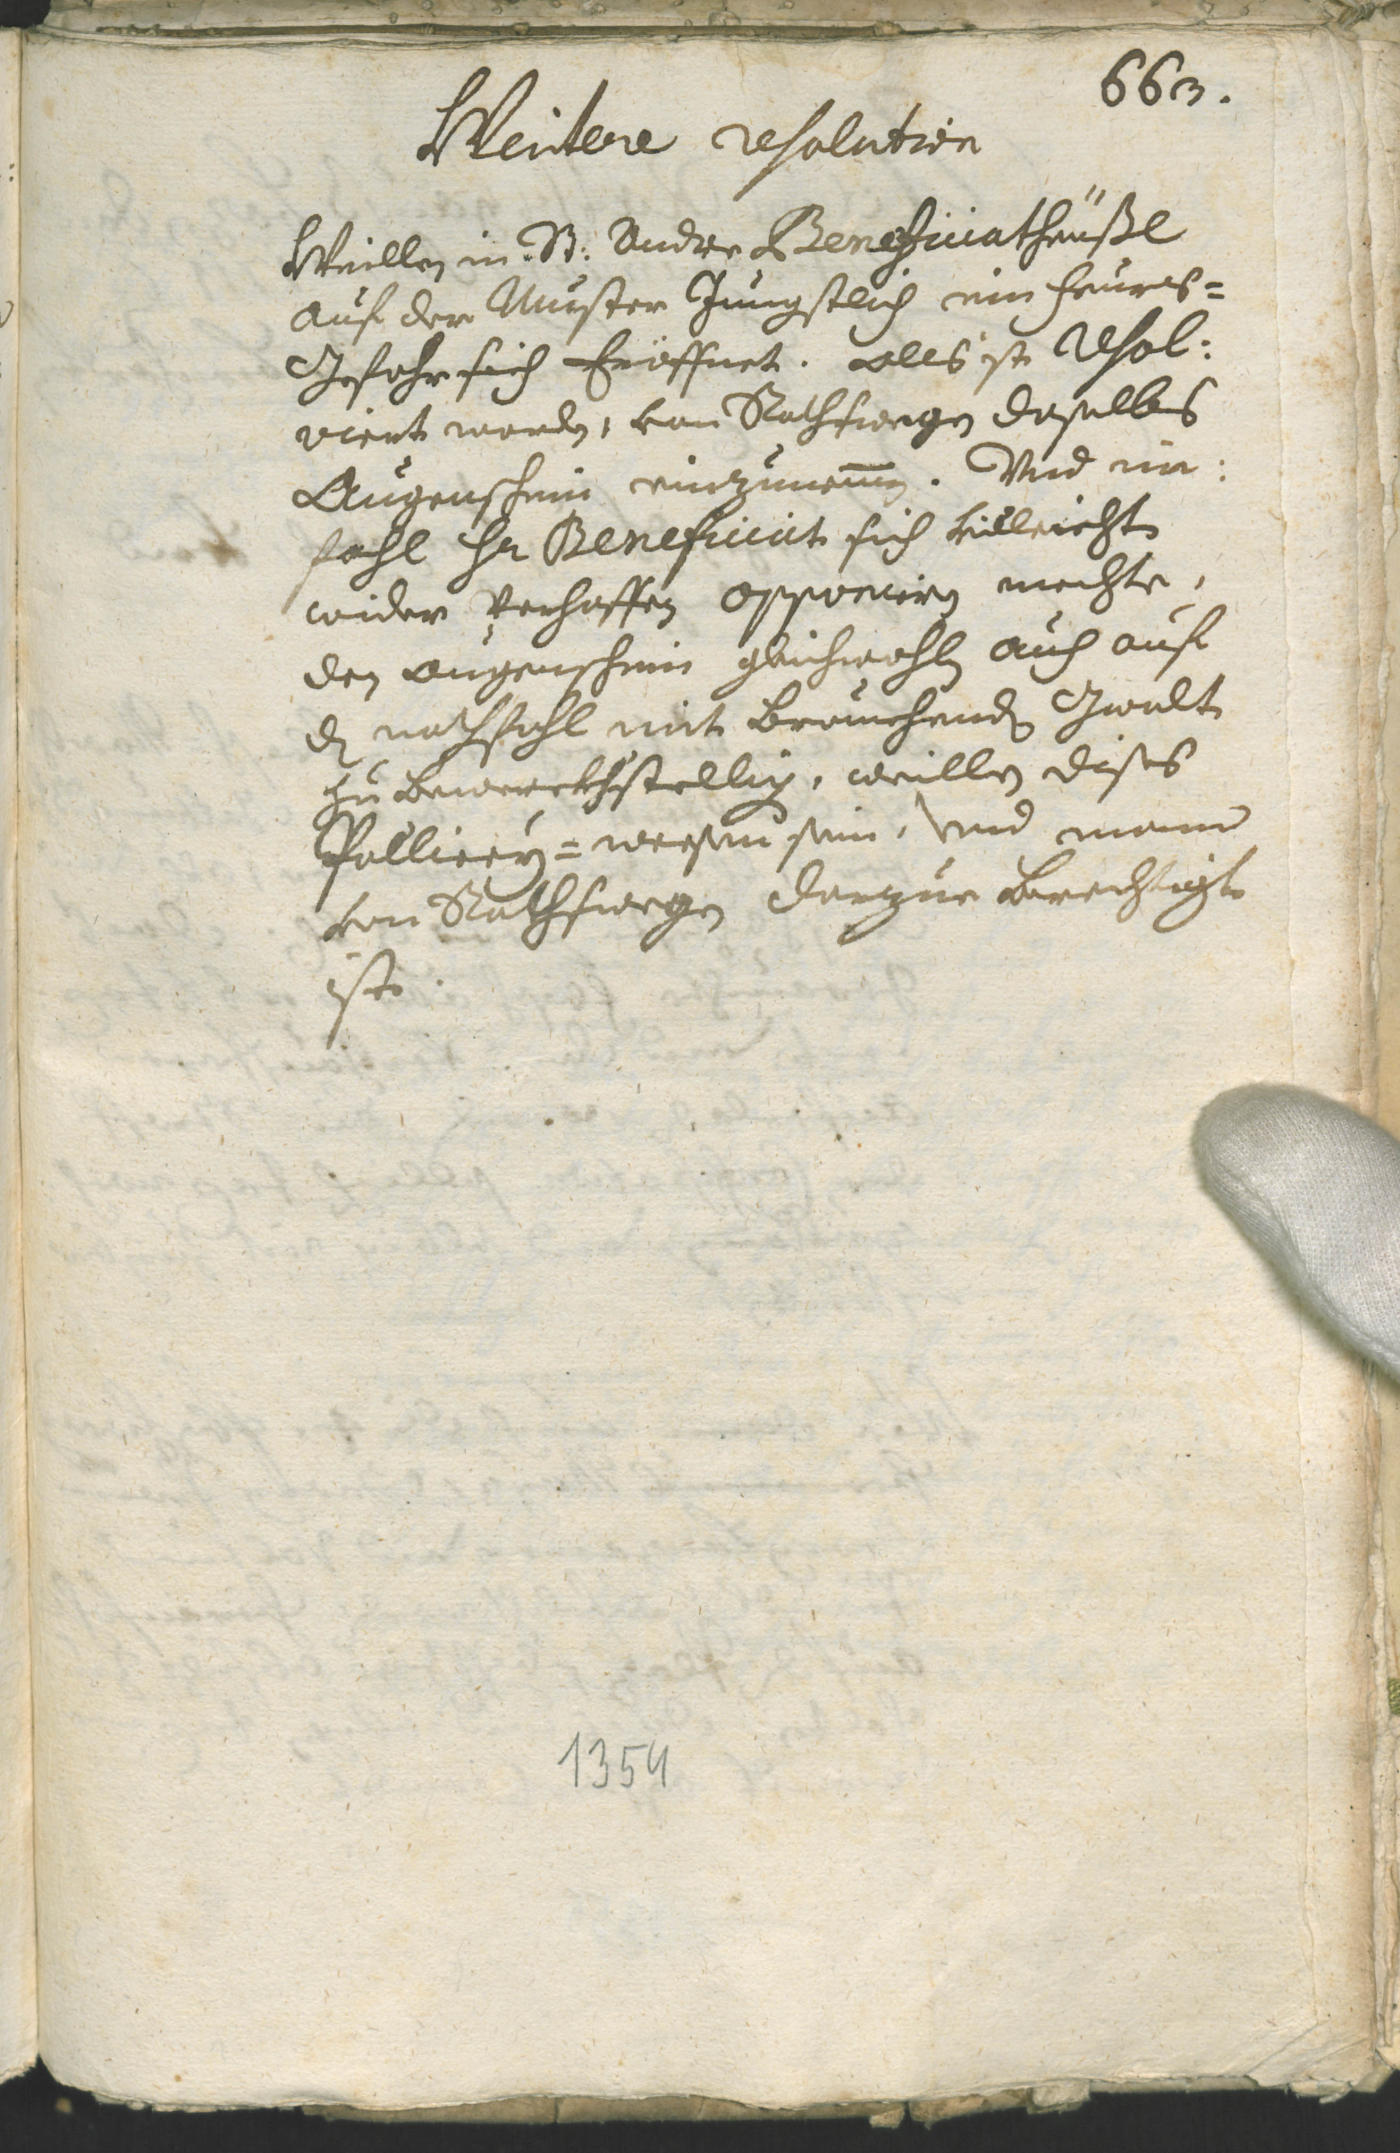 663.
Weitere resolution
Weillen in St: Andre Beneficiathäußl
auf der Muster Jüngstlich ein feures=
Gefahr sich Eröffnet. Alls ist resol:
viert worden, von Rathswegen daselbs
Augenschein einzunemen. Und im:
fahl Hr Beneficiat sich villeicht
wider verhoffen opponiren mechte,
den augenschein gleichwohlen auch auf
den nothfahl mit brauchender Gwalt
zu bewerckhstellig, weillen dises
Pollicey=weesen sein, und mann
von Rathswegen darzue berechtigt
ist.
1354